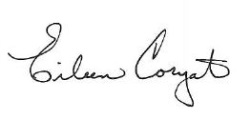 Eileen Coryat